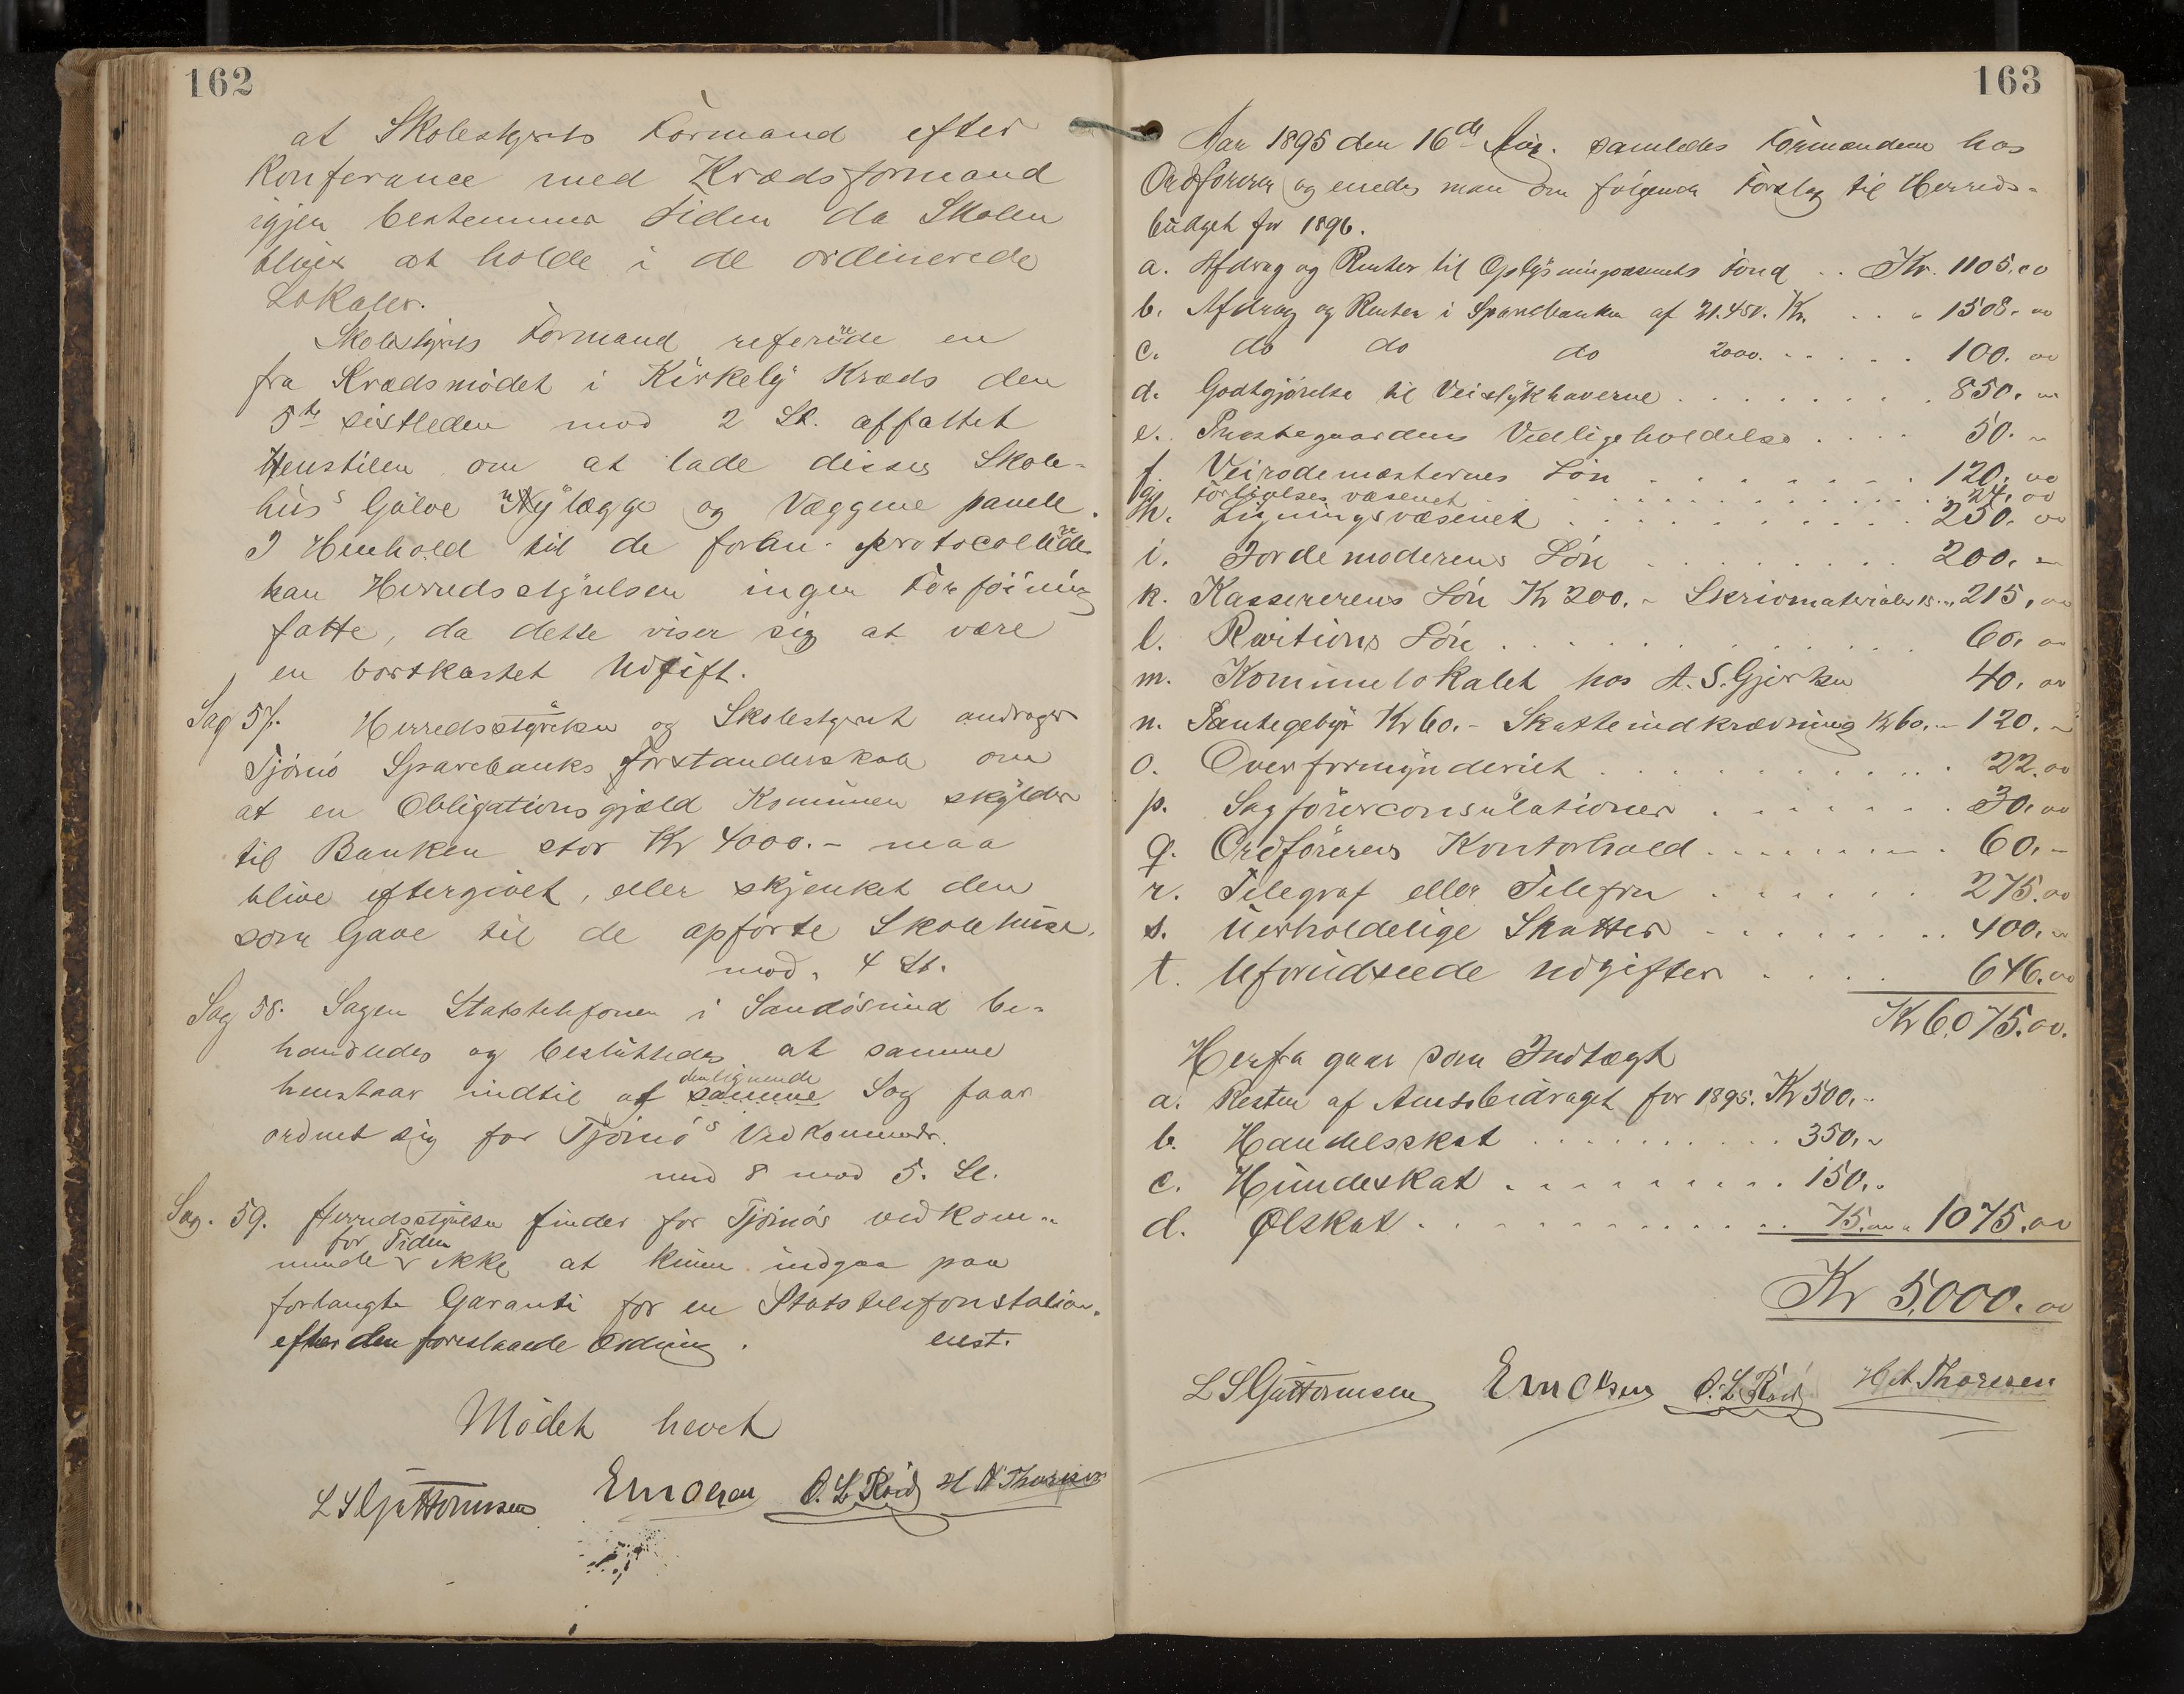 162
at Skolestyrets Formand efter
Konferance med Krædsformand
igjen bestemmer Tiden da Skolen
bliver at holde i de ordinerede
Lokaler.
Skolestyrets Formand refererede en
fra Krædsmødet i Kirkeby Kræds den
5te sistleden mod 2 St. affattet
Henstilen om at lade disses Skole-
hus's Gulve nylægge og Væggene panele.
I Henhold til de forhen protocollerede
kan Herredsstyrelsen ingen Forføining
fatte, da dette viser sig at være
en bortkastet Udgift.
Sag 57. Herredsstyrelsen og Skolestyret andrager
Tjømø Sparebanks Forstanderskab om
at en Obligationsgjæld Kommunen skylder
til Banken stor Kr 4000.- maa
blive eftergivet, eller skjenket den
som Gave til de opførte Skolehuse.
mod. 4 St.
Sag 58. Sagen Statstelefonen i Sandøsund be-
handledes og besluttedes at samme
henstaar indtil af samme denlignende Sag faar
ordnet sig for Tjømø's Vedkommende.
med 8 mod 5. St.
Sag. 59. Herredsstyrelsen finder for Tjømøs vedkom-
mende for Tiden ikke at kunne indgaa paa
forlangte Garanti for en Statstelefonstation.
efter den foreslaaede Ordning. enst.
Mødet hævet
L S Guttormsen O. L. Røed H A Thoresen
163
Aar 1895 den 16de Aug. samledes Formændene hos
Ordføreren og enedes man om følgende Forslag til Herreds-
budget for 1896.
a. Afdrag og Renter til Oplysningsvæsenets Fond .. Kr. 1105.00
b. Afdrag og Renter i Sparebanken af 21.450. Kr. . . " 1508.00
c. do do do 2000. . . . . . 100.00
d. Godtgjørelse til Veistykhaverne . . . . . . . 850.00
e. Præstegaardens Vedligeholdelse . . . . 50.-
f. Veirodemesternes Løn . . . . . . . 120.00
g. Forligelses væsenet . . . . . . . 24.00
h. Ligningsvæsenet . . . . . . . 250.00
i. Jordemoderens Løn . . . . . . . 200.-
k. Kassererens Løn Kr 200.- Skrivmaterialer 15.- 215.00
l. Revisions Løn . . . . . . . 60.00
m. Kommunelokalet hos A. S. Gjerken 40.00
n. Pantegebyr Kr 60.- Skatteindkrævning Kr 60.- 120.-
o. Overformynderiet . . . . . . . 22.00
p. Sagførerconsulationer . . . . . . . 30.00
q. Ordførerens Kontorhold . . . . . . . 60.-
r. Telegraf eller Telefon . . . . . . 275.00
s. Uerholdelige Skatter . . . . . . . 400.-
t. Uforudseede Udgifter . . . . 646.00
Kr 6.075.00.
Herfra gaar som Indtægt
a. Resten af Amtsbidraget for 1895. Kr 500.-
b. Handelsskat . . . . . . . 350.-
c. Hundeskat . . . . . . . 150.-
d. Ølskat . . . . . . . 75.00 " 1075.00
Kr 5.000.00
L S Guttormsen O. L. Røed H A Thoresen